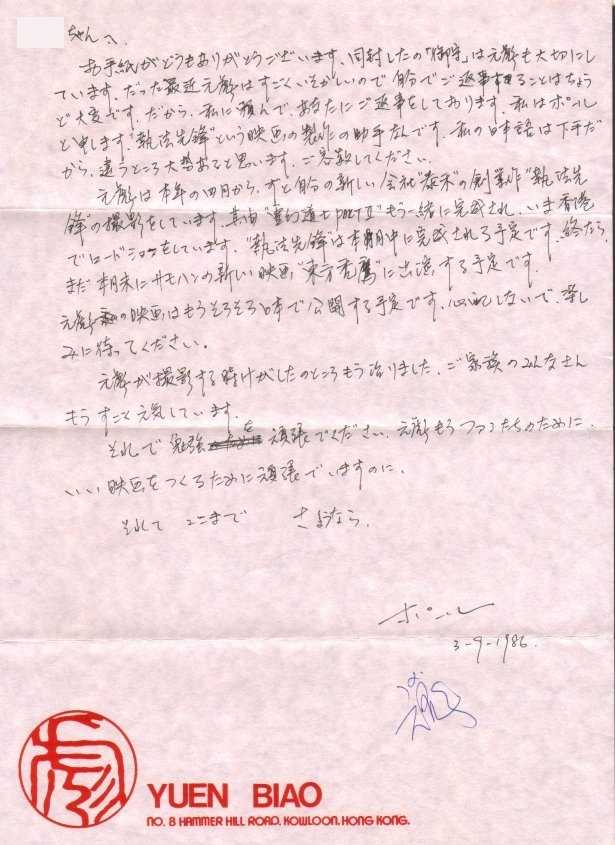 ちゃんへ
お手紙がどうもありがとうございます。同封したの「御守」は元彪も大切にし
ています。だった最近元彪はすごくいそがしいので自分でご返事することはちょう
ど大変です。だから、私に頼んで、あなたにご返事をしております。私はポール
と申します“執法先鋒”という映画の製作の助手なんです。私の日本語は下手だ
から、違うところ大勢あると思います。ご容赦してください。
元彪は本年の四月から、ずと自分の新しい会社“泰禾”の創業作“執法先
鋒”の撮影をしています。其由 part II”もう一緒に完成され、いま香港
でロードショウをしています。“執法先鋒”は本月中に完成される予定です。終たら
まだ本月末にサモハンの新しい映画“東方禿鷹”に出演する予定です。
元彪の映画はもうそろそろ日本で公開する予定です。心配しないで、楽し
みに待ってください。
元彪が撮影する時けがしたのところもう治りました。ご家族のみんなさん
もうすごく元気しています。
それで勉強を頑張でください。元彪もうファンたちのために、
いい映画をつくるために頑張でいますのに。
それて ここまで さようなら。
ポール
3-9-1986.
YUEN BIAO
NO. 8 HAMMER HILL ROAD, KOWLOON, HONG KONG.